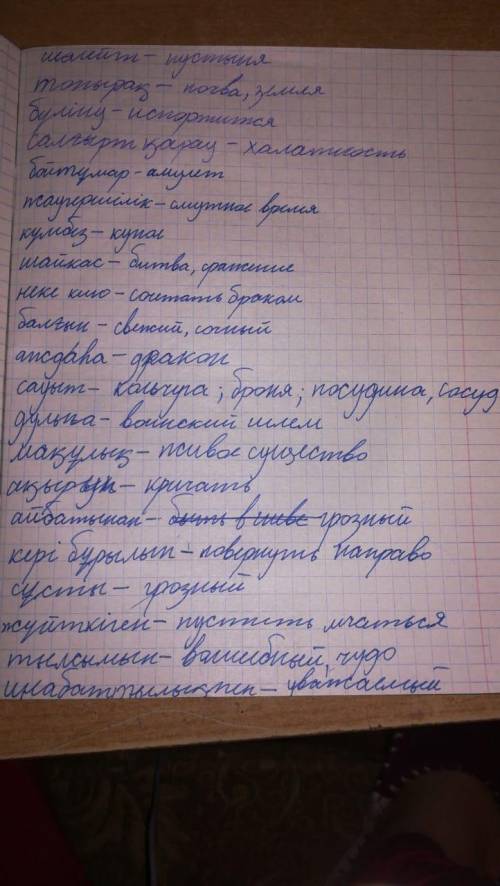 шөлейт – пустыня
топырақ – почва, земля
бүліну – испортится
салғырт қарау – халатность
бойтұмар – амулет
жаугершілік – смутное время
күмбез – купол
шайқас – битва, сражение
неке қию – сочетать браком
балғын – свежий, сочный
аждаһа – дракон
сауыт – кольчуга; броня; посудина, сосуд
дулыға – воинский шлем
мақұлық – живое существо
ақырып – кричать
айбатынан – быть в гневе грозный
кері бұрылып – повернуть направо
сұсты – грозный
жүйткіген – пустить мчаться
тылсымын – волшебный, чудо
инабаттылықпен – уважаемый